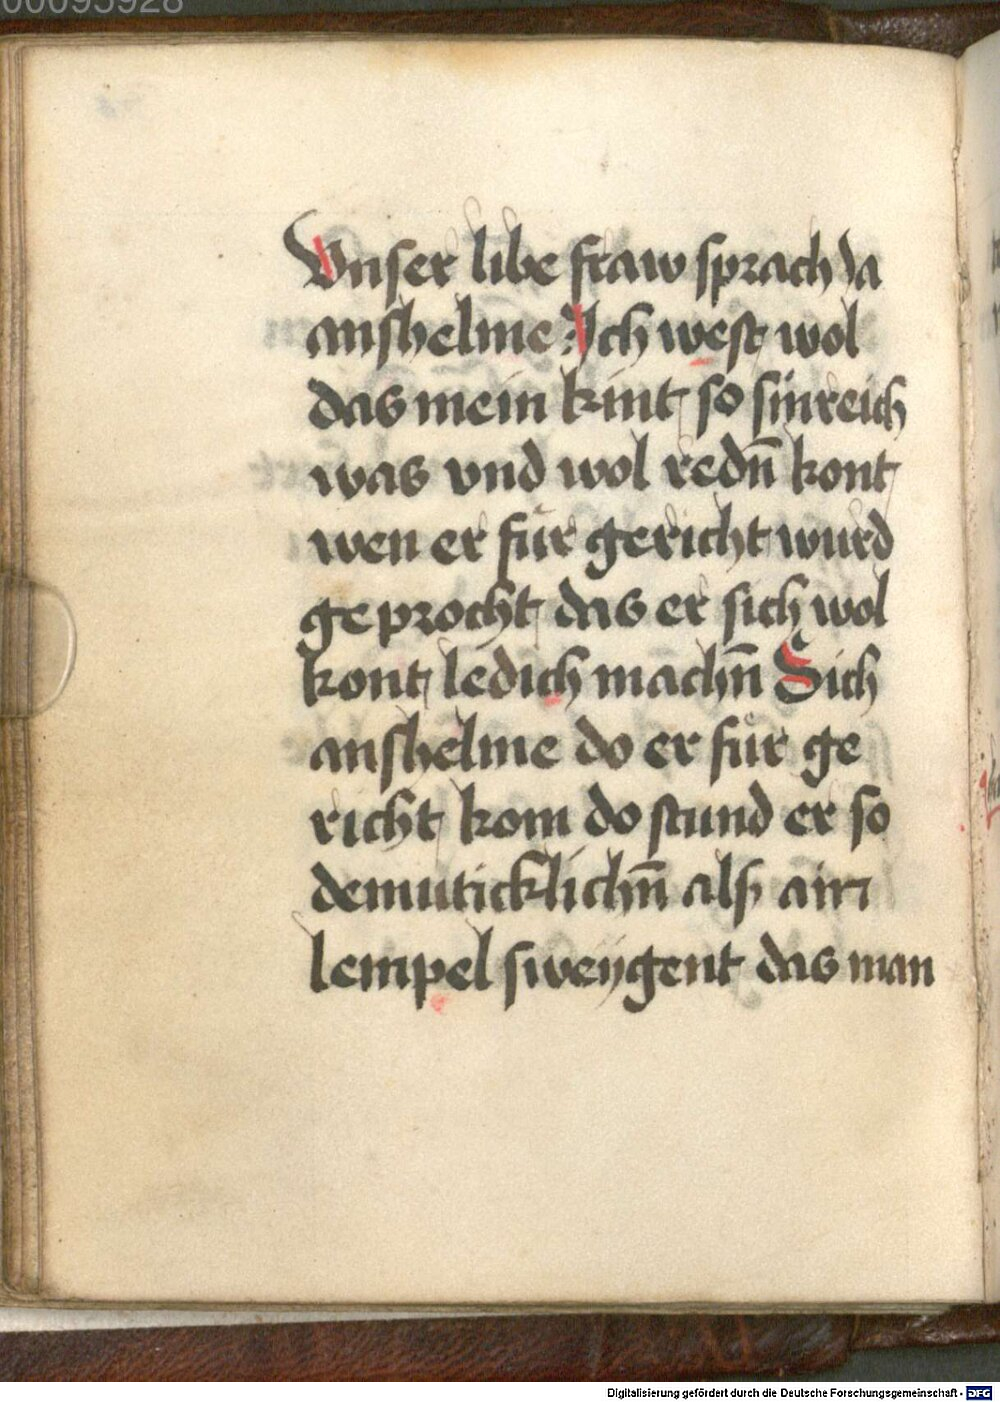 00095928
Vnser libe fraw sprach Ja
anshelme Ich west wol
das mein kint so sinreich
was vnd wol redn̄ kont
wen er für gericht wurd
geprocht das er sich wol
kont ledich machn̄ Sich
anshelme do er für ge
richt kom do stund er so
demuticklichn̄ als ain
lempel sweygent das man
Digitalisierung gefördert durch die Deutsche Forschungsgemeinschaft - DFG